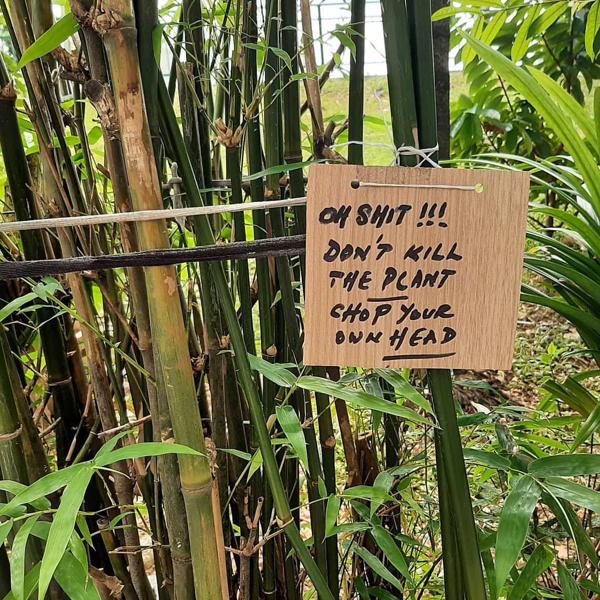 OH SHIT !!!
DON'T KILL
THE PLANT
CHOP YOUR
OWN HEAD